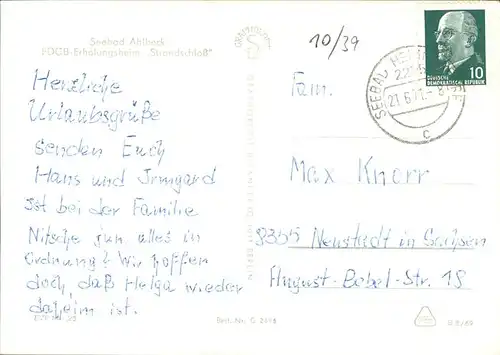 Seebad Ahlbeck
FDGB-Erholungsheim „Strandschloß"
10/39
DEUTSCHE
DEMOKRATISCHE REPUBLIK
10
SEEBAD HE
21.6.71
c
Herzliche
Urlaubsgrüße
senden Euch
Hans und Irmgard
Ist bei der Familie
Nitsche jun alles in
Ordnung? Wir hoffen
doch daß Helga wieder
daheim ist.
Fam.
Max Knorr
8355 Neustadt in Sachsen
August-Bebel-Str. 18
Best.-Nr. G 2418